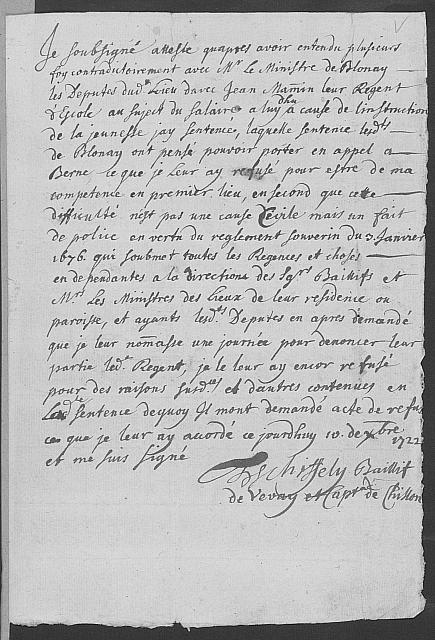 Je soubsigné atteste quapres avoir entendu plusieurs
foy contradictoirement avec Mr. le Ministre de Blonay
les Deputes dud. Lieu davec Jean Mamin leur Regent
d'Escole au suject du salaire a luy dhu a cause de linstruction
de la jeunesse jay sentencé, laquelle sentence lesdts
de Blonay ont pensé pouvoir porter en appel a
Berne ce que je Leur ay refusé pour estre de ma
competence en premier lieu, en second que cette
difficulté nest pas une cause Civile mais un fait
de police en vertu du reglement souverin du 3. Janvier
1676. qui soubmet toutes les Regences et choses
en dependantes a la direction des Sgrs Baillifs et
Mrs Les Ministres des Lieux de leur residence ou
paroisse, et ayants lesdts Deputes en apres demandé
que je leur nomasse une journée pour denoncer leur
partie led. Regent, je le leur ay encor refusé
pour des raisons susdtes et dautres contenues en
Ladte sentence dequoy Ils mont demandé acte de refus
ce que je leur ay accordé ce jourdhuy 10. de xbre 1722
et me suis signé
Tschiffely Baillif
de Vevay et Captne de Chillon